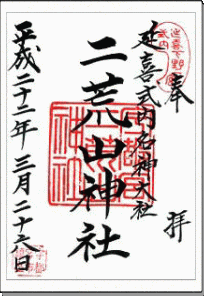 奉拝
延喜式内名神大社
二荒山神社
平成二十二年三月二十六日